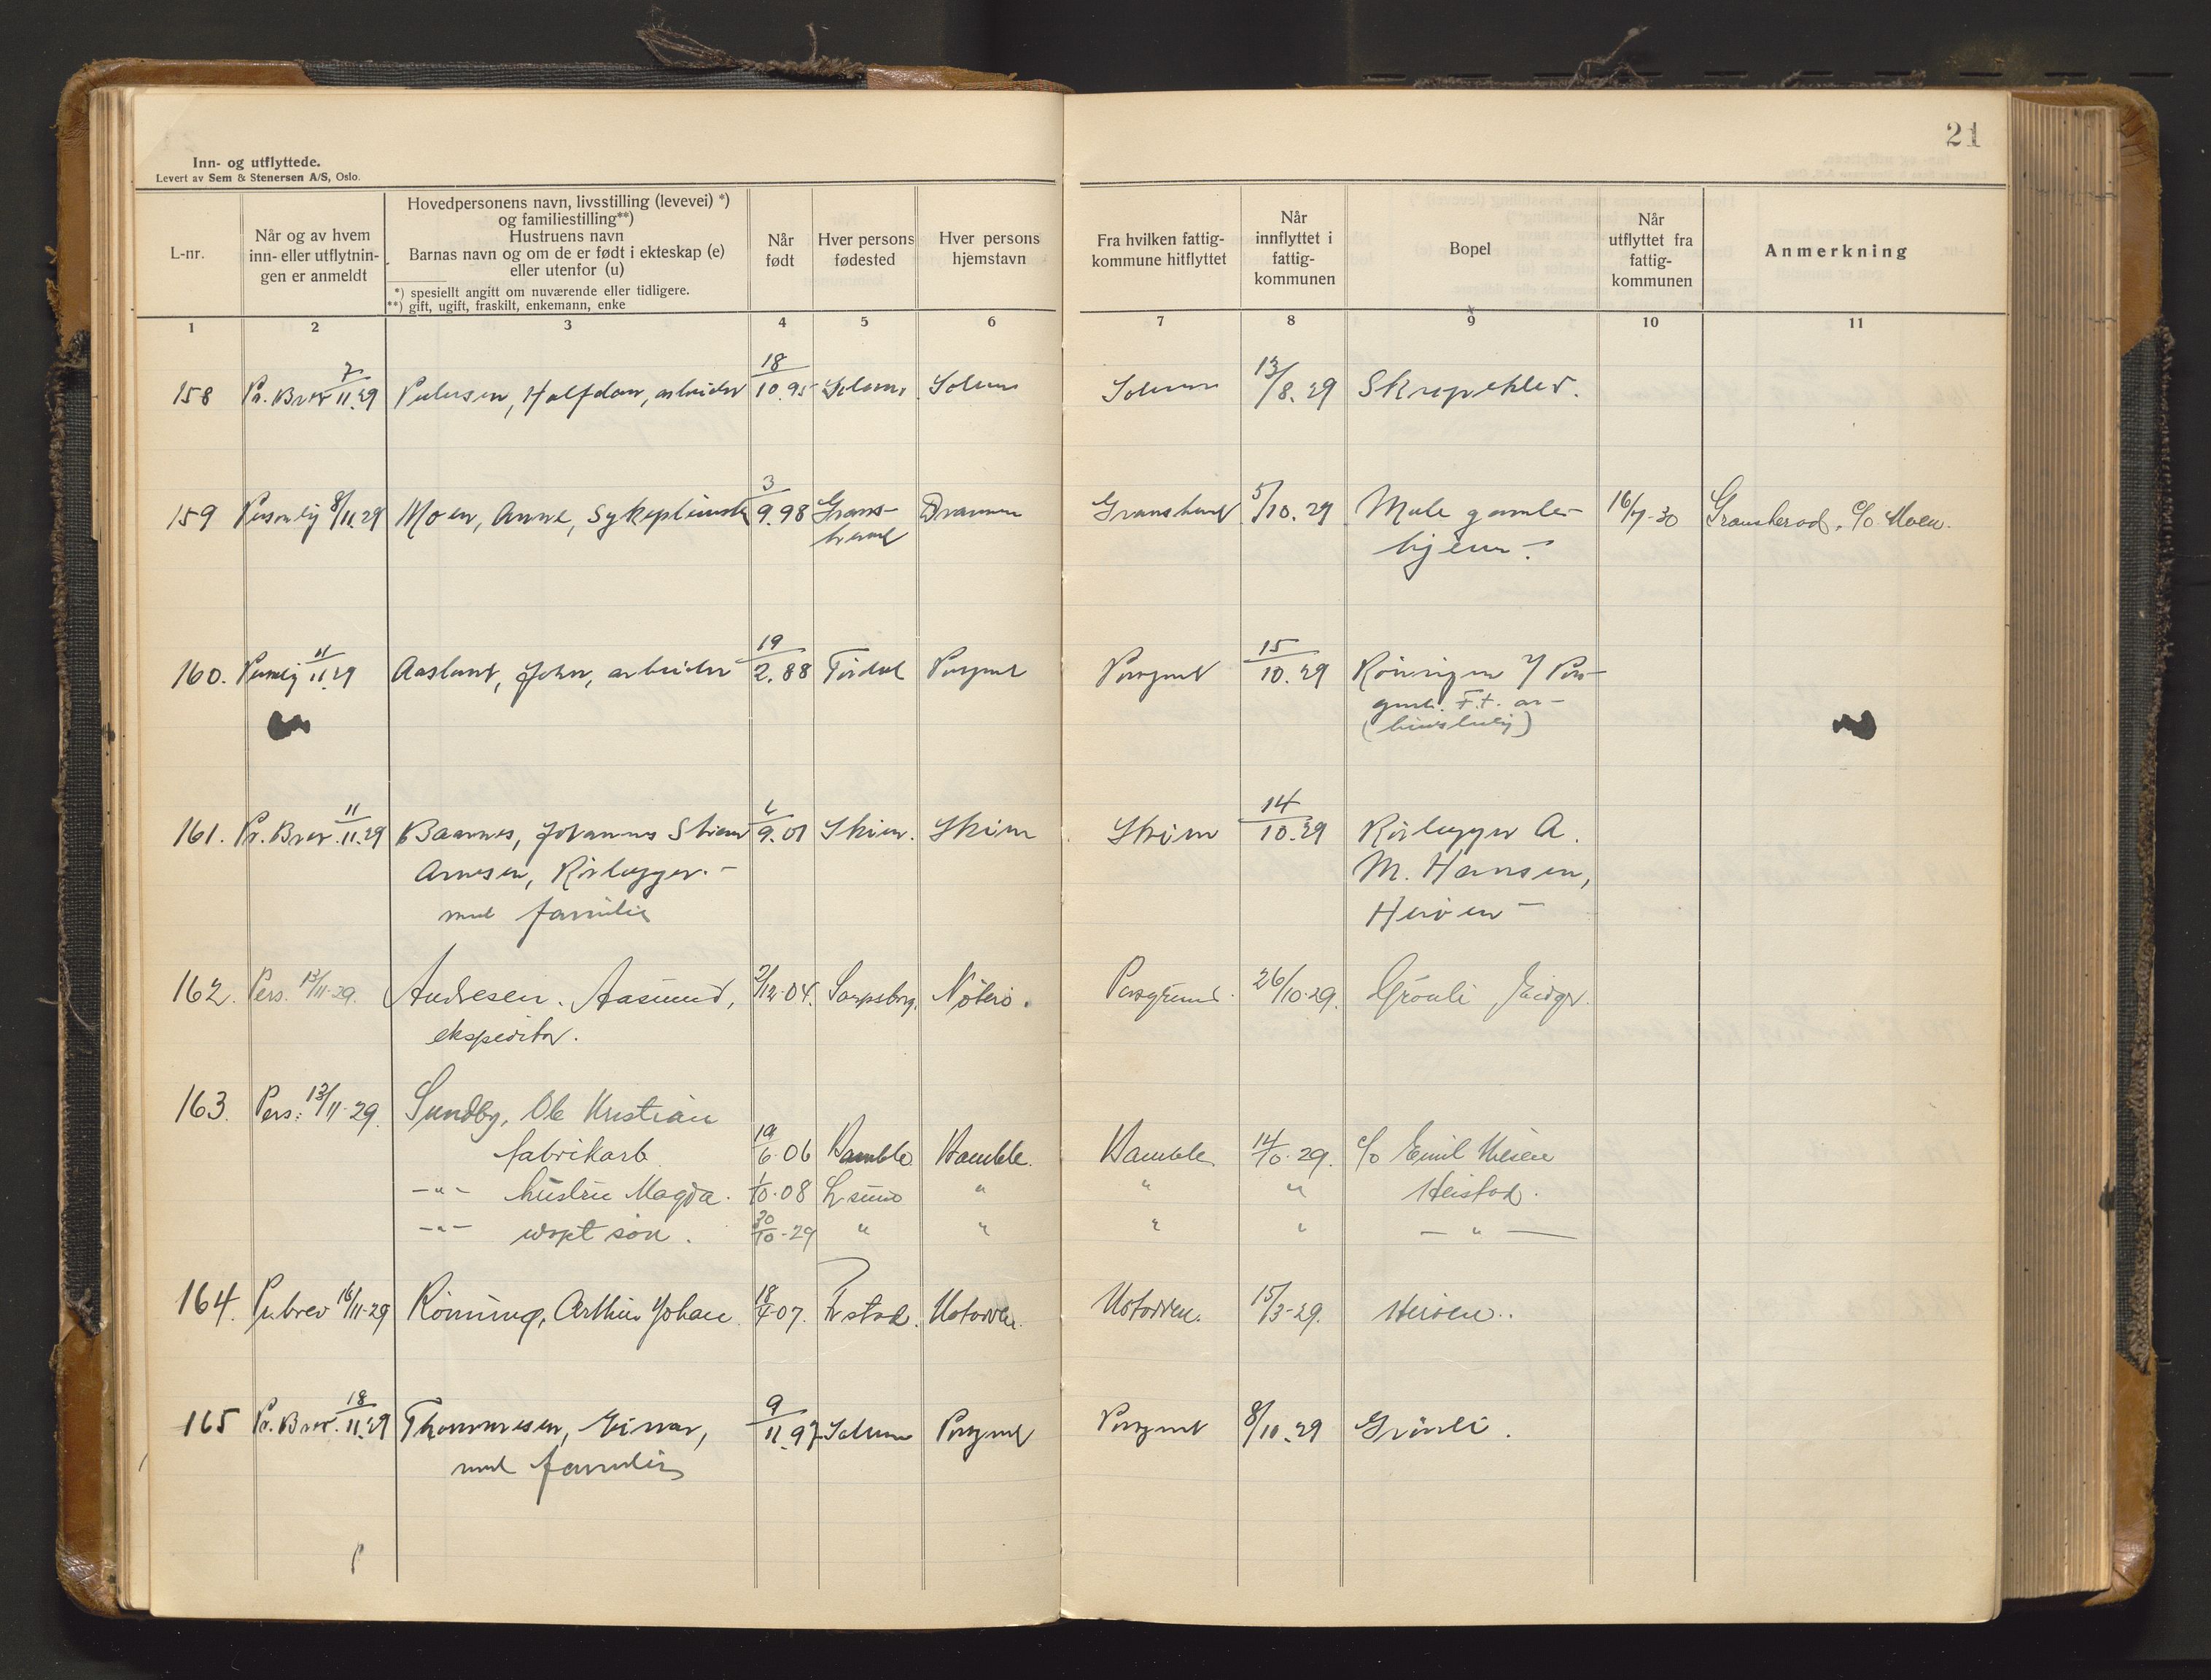 21
Inn- og utflyttede.
Levert av Sem & Stenersen A/S, Oslo.
L-nr.
Når og av hvem
inn- eller utflytnin-
gen er anmeldt
Hovedpersonens navn, livsstilling (levevei) *)
og familiestilling**)
Hustruens navn
Barnas navn og om de er født i ekteskap (e)
eller utenfor (u)
*) spesiellt angitt om nuværende eller tidligere.
**) gift, ugift, fraskilt, enkemann, enke
Når
født
Hver persons
fødested
Hver persons
hjemstavn
Fra hvilken fattig-
kommune hitflyttet
Når
innflyttet i
fattig-
kommunen
Bopel
Når
utflyttet fra
fattig-
kommunen
Anmerkning
1 2 3 4 5 6 7 8 9 10 11
158 Pr. Brev 7/11.29 Pedersen, Halfdan, arbeider 18/10.95 Solum Solum Solum 13/8.29
159 Personlig 8/11.29 Moen, Anne, Sykepleierske 3/9.98 Grans- Drammen Gransherad 5/10.29 Mule gamle- 16/7-30 Gransherad, c/o Moen.
herad hjem -
160. Personlig 11/11.29 Aaslund, John, arbeider 19/2.88 Tørdal Porsgrund Porsgrund 15/10.29
161. Pr. Brev. 11/11.29 Baarnes, Johannes 9.01 Skien. Skien Skien 14/10.29 Rørlegger A.
Arnesen, Rørlegger. - M. Hansen,
med familie Herøen -
162. Pers. 13/11-29. Andresen. Aasmund, 2/12-04. Sarpsborg. Nøterø. Porsgrund. 26/10-29. Grönli Eidgr.
ekspeditør.
163. Pers: 13/11-29. Sundby, Ole Kristian
fabrikarb. 19/6-06 Bamble Bamble. Bamble. 14/10-29. c/o Emil
-"- hustru Magda. 1/10-08 " " " Heistad.
-"- udøpt søn. 30/10-29 " " " " - " -
164. Pr. brev 16/11-29 Rønning, Arthur Johan 18/4-07. Notodden. Notodden. 15/3-29. Herøen..
165 Pr. Brev. 18/11.29 Thommesen, Einar, 9/11.97 Solum Porsgrund Porsgrund 8/10.29 Grönli.
med familie